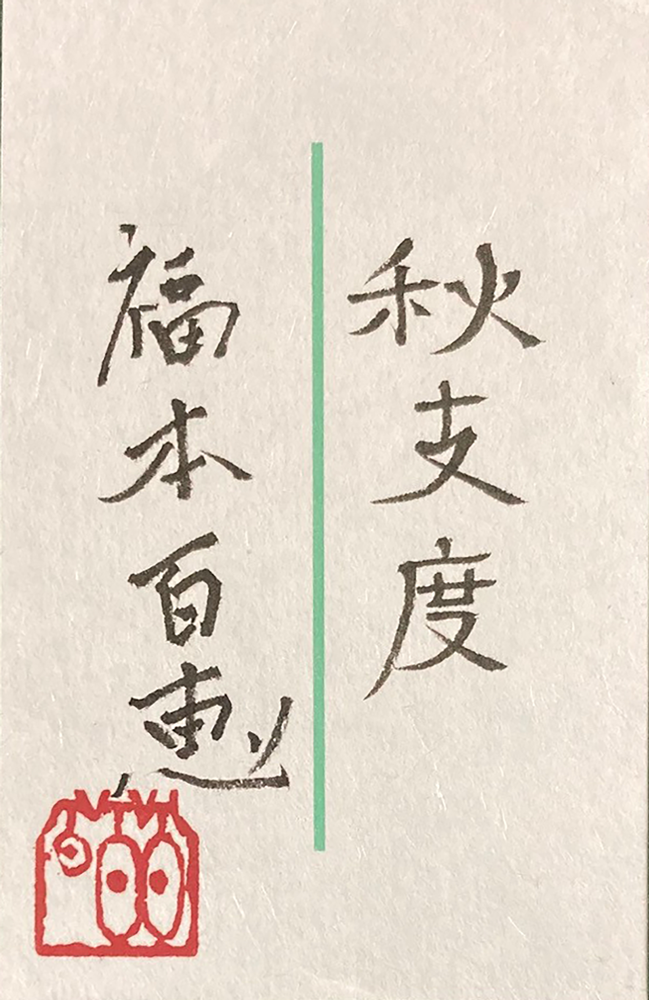 秋支度
福本百恵